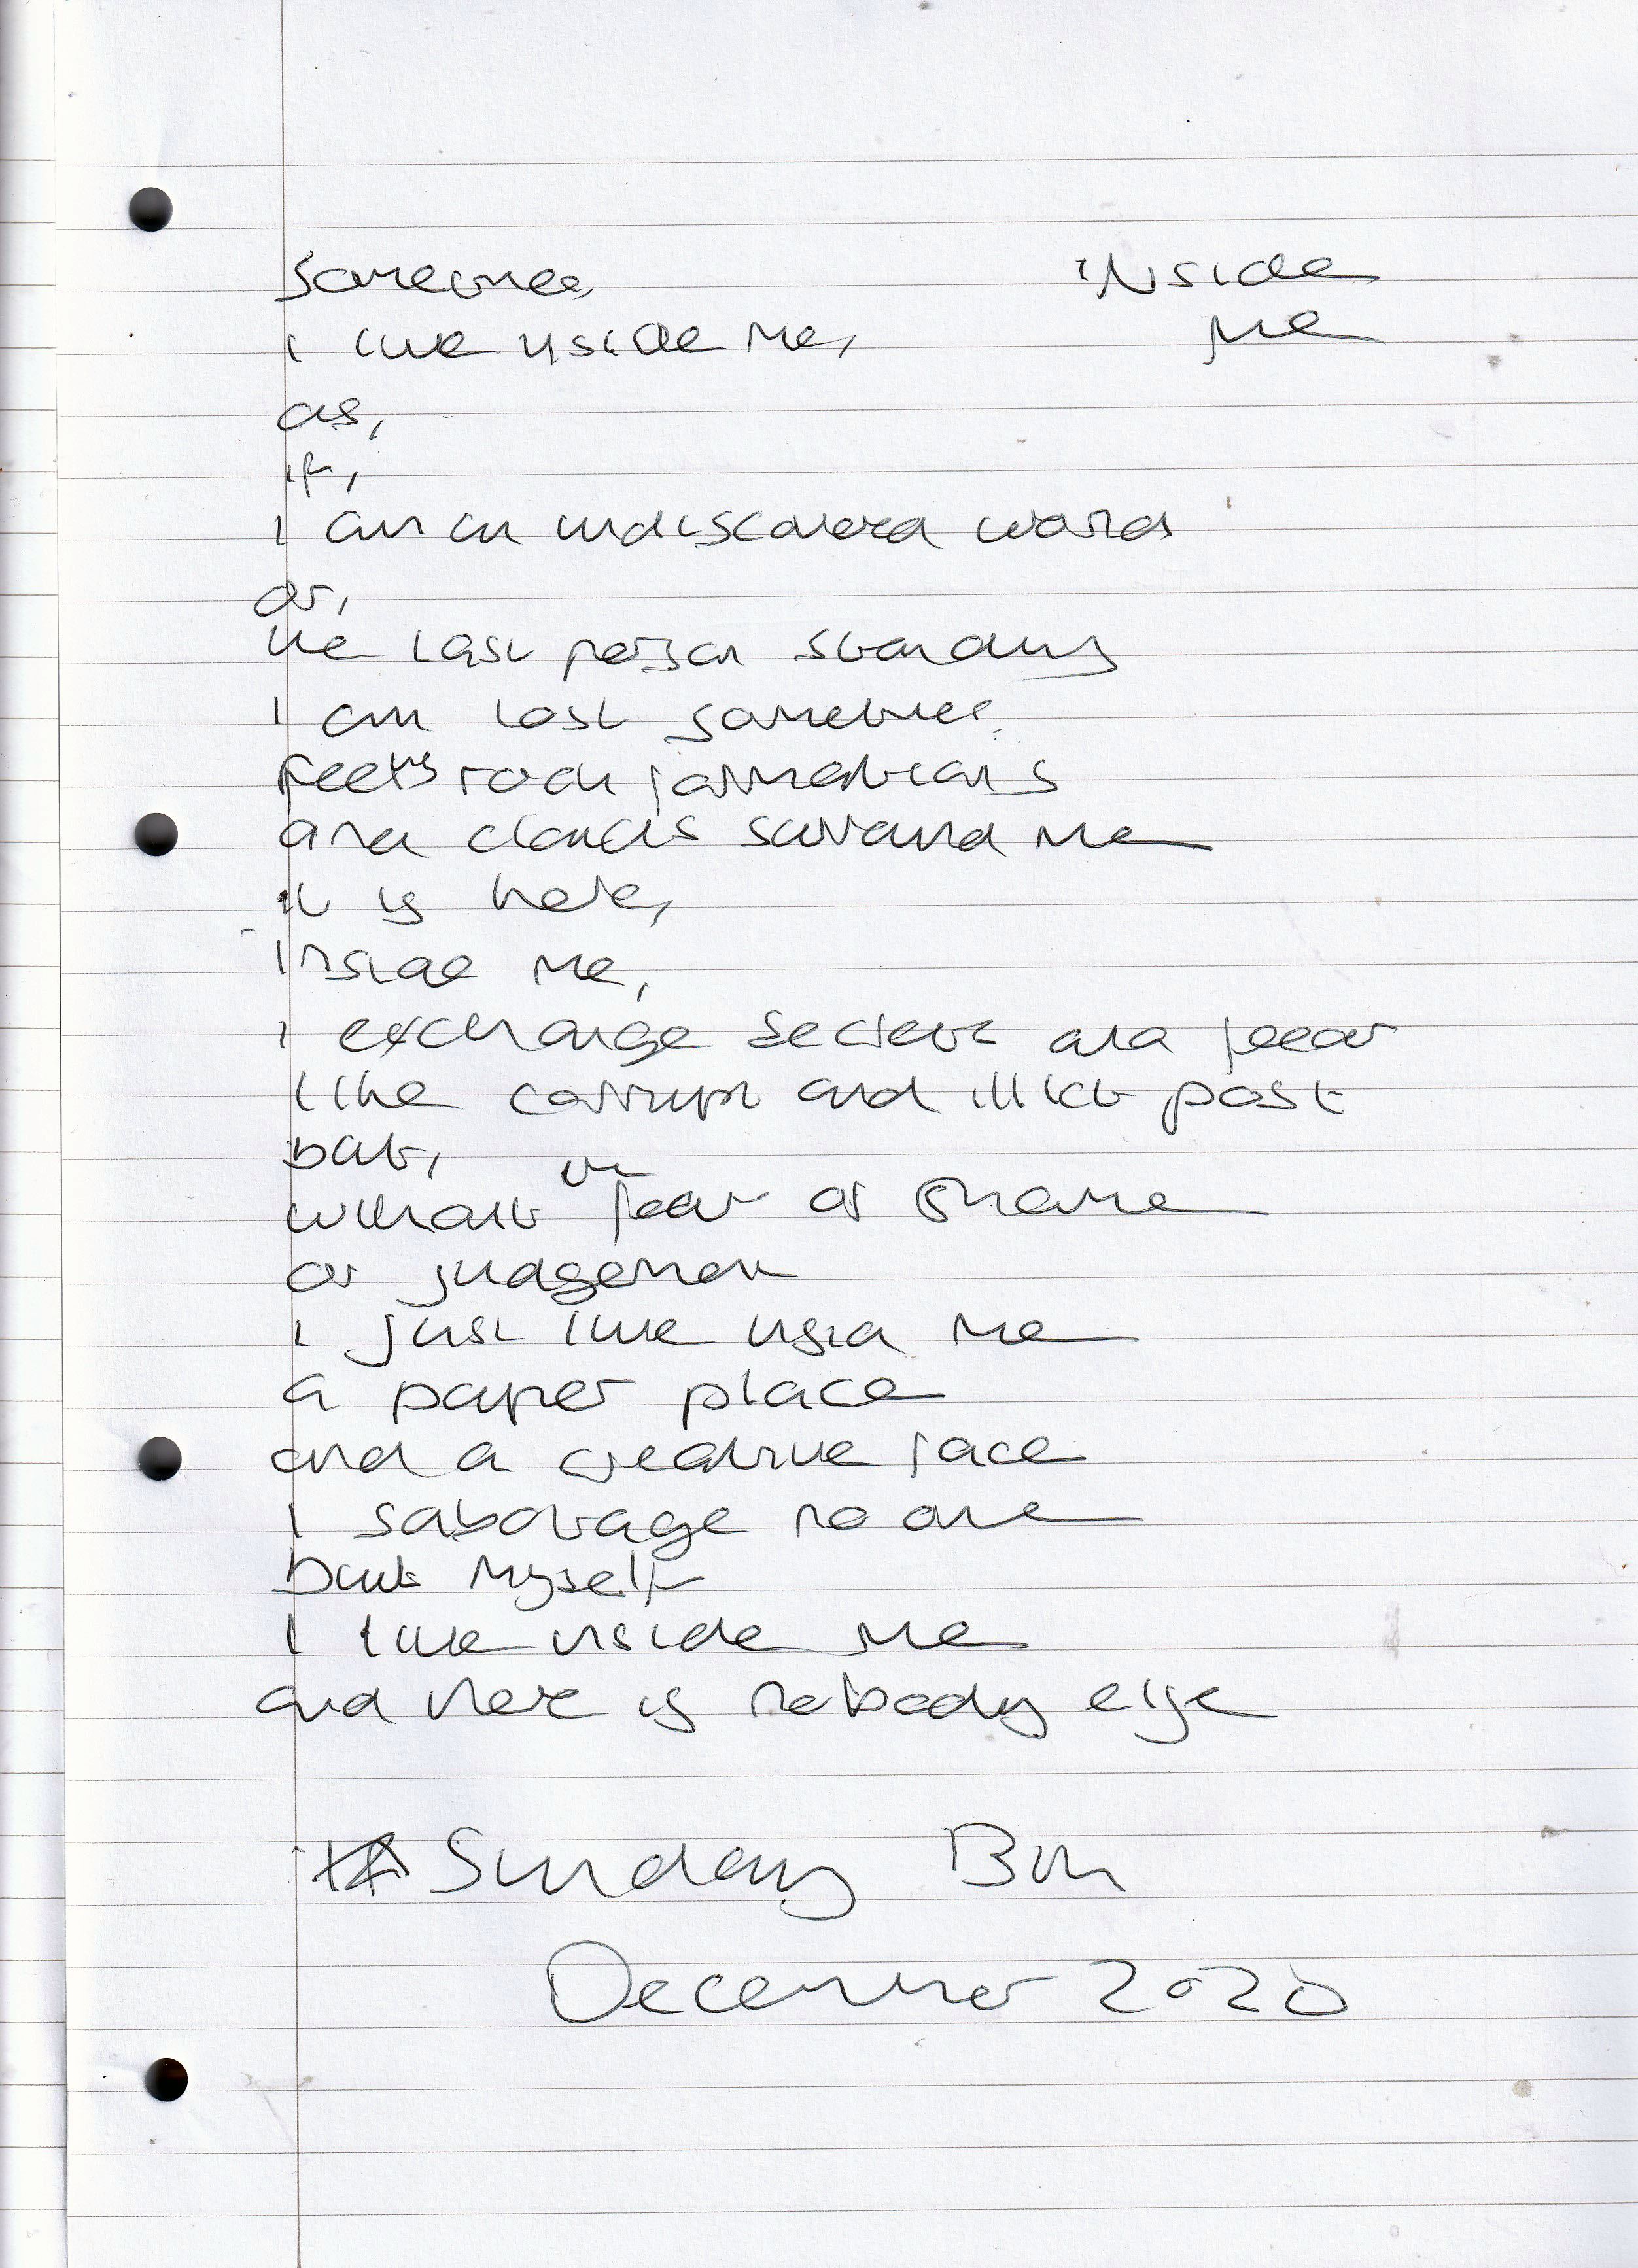 inside
me
Sometimes
i live inside me,
as,
if,
i am an undiscovered world
or,
the last person standing
I am lost sometimes
feels rock formations
and clouds surround me
it is here,
inside me,
i exchange secrets and fear
like corrupt and illicit past
but,
without the fear or shame
or judgement
i just live inside me
a paper place
and a creative face
I sabotage no one
but myself
I live inside me
and there is nobody else
Sunday
December 2020